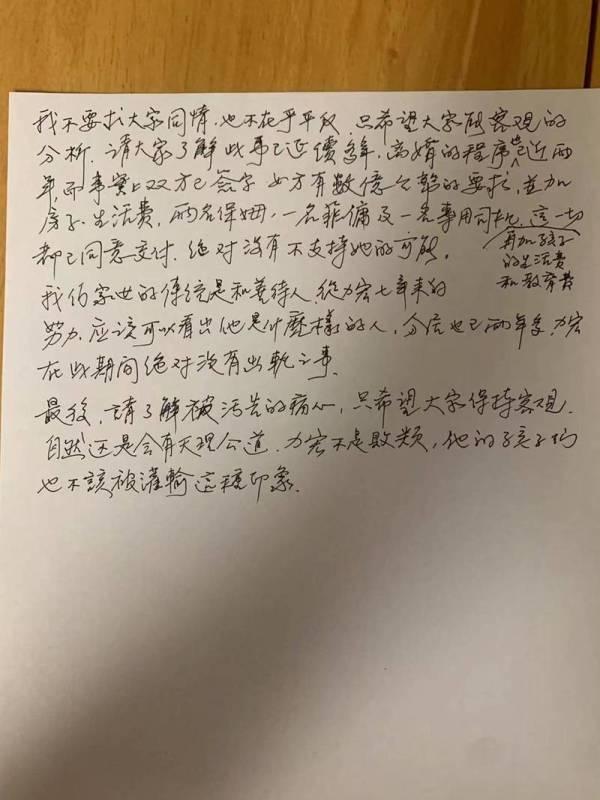 我不要求大家同情,也不在乎平反,只希望大家能客观的
分析,请大家了解此事已延續多年,离婚的程序也已近两
年,而事實上双方已签字,女方有数億的要求,並加
房子、生活费,两名保姆,一名菲傭及一名專用司机,這一切
再加孩子
的生活费
和教育费
都已同意支付,绝对没有不支持她的可能。
我们家世的傳统是和善待人,從力宏七年来的
努力,应該可以看出他是什麼樣的人,分居也已两年多,力宏
在此期间绝对没有出軌之事。
最后,請了解被污告的痛心,只希望大家保持客观,
自然还是会有天理公道,力宏不是敗類,他的孩子们
也不該被灌輸这種印象。